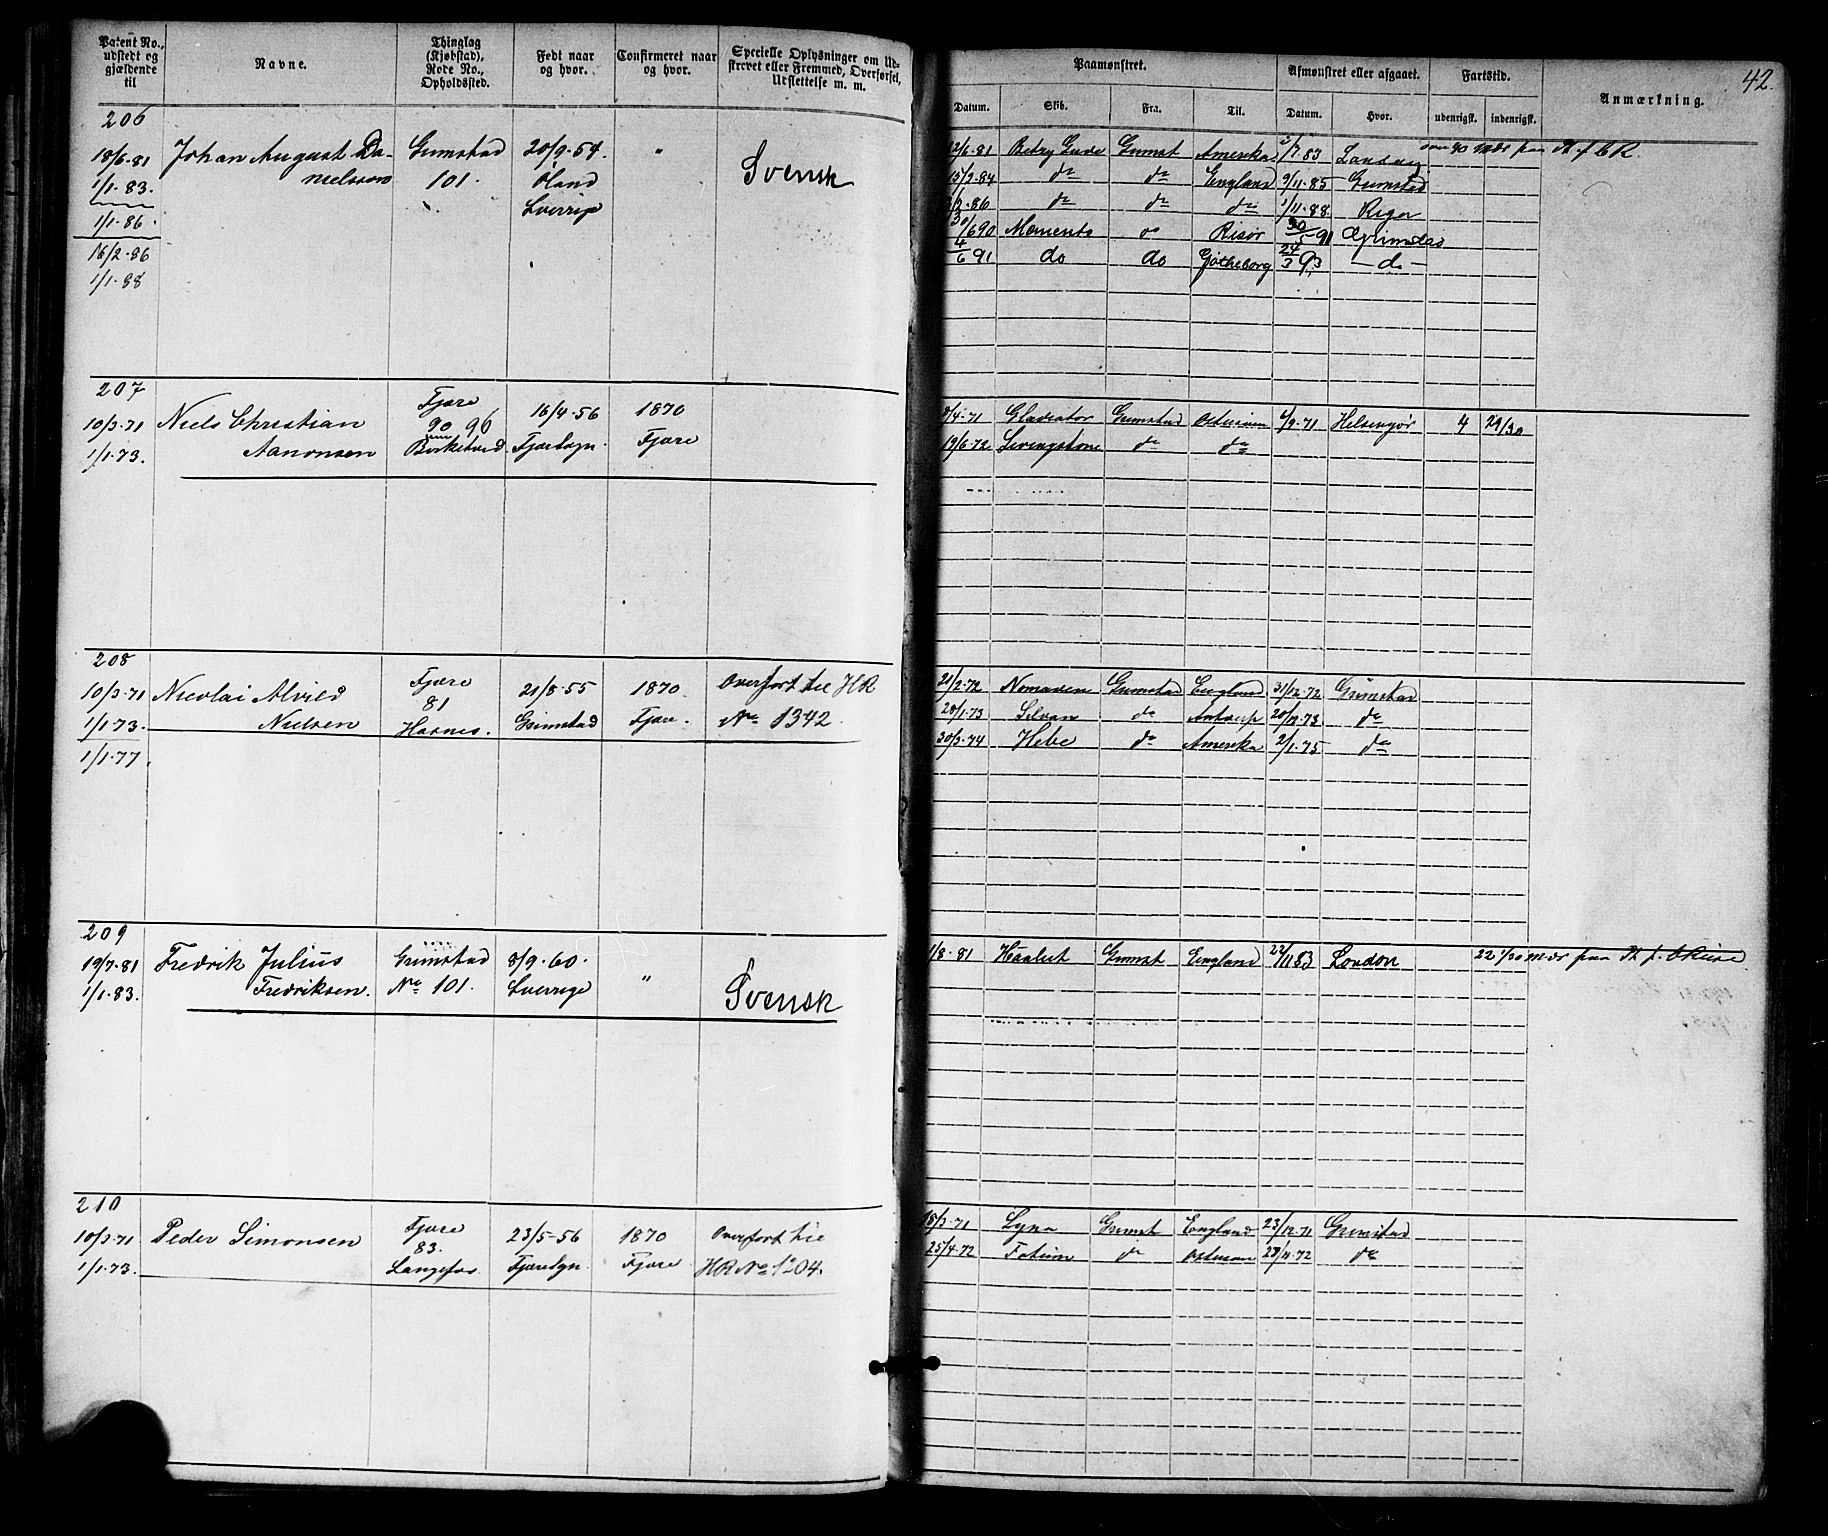 42.
Patent No., udstedt og gjældende til
Navne.
Thinglag (Kjøbstad), Rode No., Opholdssted.
Født naar og hvor.
Confirmeret naar og hvor.
Specielle Oplysninger om Udskrevet eller Fremmed, Overførsel, Udslettelse m. m.
Paamønstret.
Afmønstret eller afgaaet.
Fartstid.
Anmærkning.
Datum. Skib. Fra. Til. Datum. Hvor. udenrigsk. indenrigsk.
206
18/6-81 Johan August Da- Grimstad 20/9-54. "
1/1-83. nielsson 101. Øland Svensk
1/1-86. Sverrig
16/2-86
1/1-88
12/6-81 Betzy Gude Grimst Amerika /7-83
15/2-84 do do England 9/11-85 Grimstad
/2-86 do do do 1/11-88. Riga
30/6 90 Moments do Risör 30/5-91 Grimstad
4/6 91 do do Götheborg 24/3 93 - do -
207
10/3-71 Niels Christian Fjære 16/4-56 1870
1/1-73. Aanonsen 90 96 Birketved Fjæresogn. Fjære
8/4-71 Gladiator Grimstad Østersøen 6/9-71 Helsingør 4 29/30
19/6-72 Livingstone do do
208
10/3-71 Nicolai Alvild Fjære 21/8-55 1870. Overført til HR
1/1-73. Nielsen 81 Hasnes. Grimstad Fjære. No 1342.
1/1-77.
21/2-72 Nornaven Grimstad England 31/12-72 Grimstad
28/1-73 Silvan do Antverp 20/12-73. do
30/3-74 Hebe do Amerika 2/1-75. do
209
19/7-81 Fredrik Julius Grimstad 8/9-60. "
1/1-83. Fredriksen. No 101. Sverrige Svensk
1/8-81 Haabet Grimst England 22/11 83 London 22 1/30 mdr paa
210
10/3-71 Peder Simonsen Fjære 23/5-56 1870 Overført til
1/1-73. 83. Langefos Fjæresogn. Fjære HR No 1204.
18/3-71 Lyna Grimst England 23/12-71 Grimstad
25/4-72 Fotum do 27/11-72 do